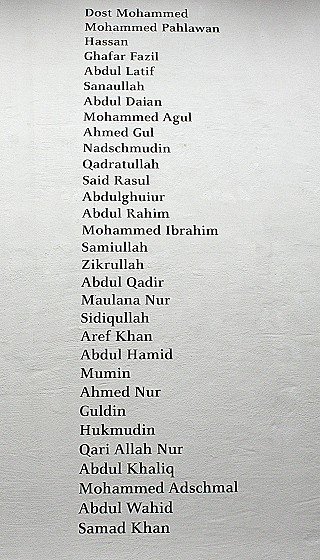 Dost Mohammed
Mohammed Pahlawan
Hassan
Ghafar Fazil
Abdul Latif
Sanaullah
Abdul Daian
Mohammed Agul
Ahmed Gul
Nadschmudin
Qadratullah
Said Rasul
Abdulghuiur
Abdul Rahim
Mohammed Ibrahim
Samiullah
Zikrullah
Abdul Qadir
Maulana Nur
Sidiqullah
Aref Khan
Abdul Hamid
Mumin
Ahmed Nur
Guldin
Hukmudin
Qari Allah Nur
Abdul Khaliq
Mohammed Adschmal
Abdul Wahid
Samad Khan